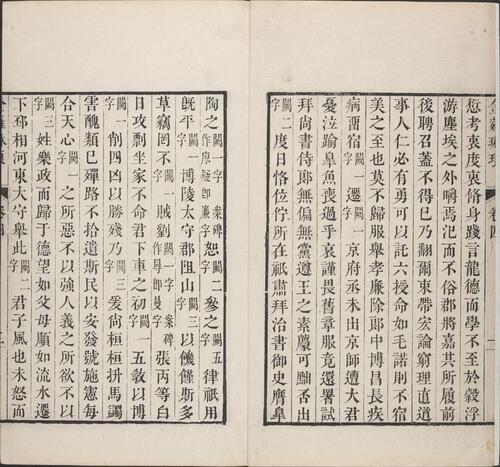 愆考衷度衷脩身踐言龍德而學不至於穀浮
游塵埃之外嚼焉氾而不俗郡將嘉其所履前
後聘召蓋不得已乃翻爾束帶宏論窮理直道
事人仁必有勇可以託六授命如毛諾則不宿
美之至也莫不歸服舉孝廉除郎中博昌長疾
病畱宿闕一字遷闕一字京府丞未出京師遭大君
憂泣踰皐魚喪過乎哀謹畏舊章服竟還署試
拜尚書侍郎無偏無黨遵王之素闕一字可黜否出
闕二字度日恪位佇所在祗肅拜治書御史膺皐
陶之闕一字案碑作廉疑卽廉字恕闕二字參之闕五字律祗用
既平闕一字博陵太守郡阻山闕三字以饑饉斯多
草竊罔不闕一字賊劉闕一字案碑作㝵卽㝵字張丙等白
日攻剽坐家不命君下車之初闕一字五敎以博
闕一字削四凶以勝殘乃闕三字爰尙桓桓拼馬鐲
害醜類已殫路不拾遺斯民以安發號施憲每
合天心闕一字之所惡不以強人義之所欲不以
闕三字姓樂政而歸于德望如父母順如流水遷
下邳相河東大守舉此闕二字君子風也未怒而